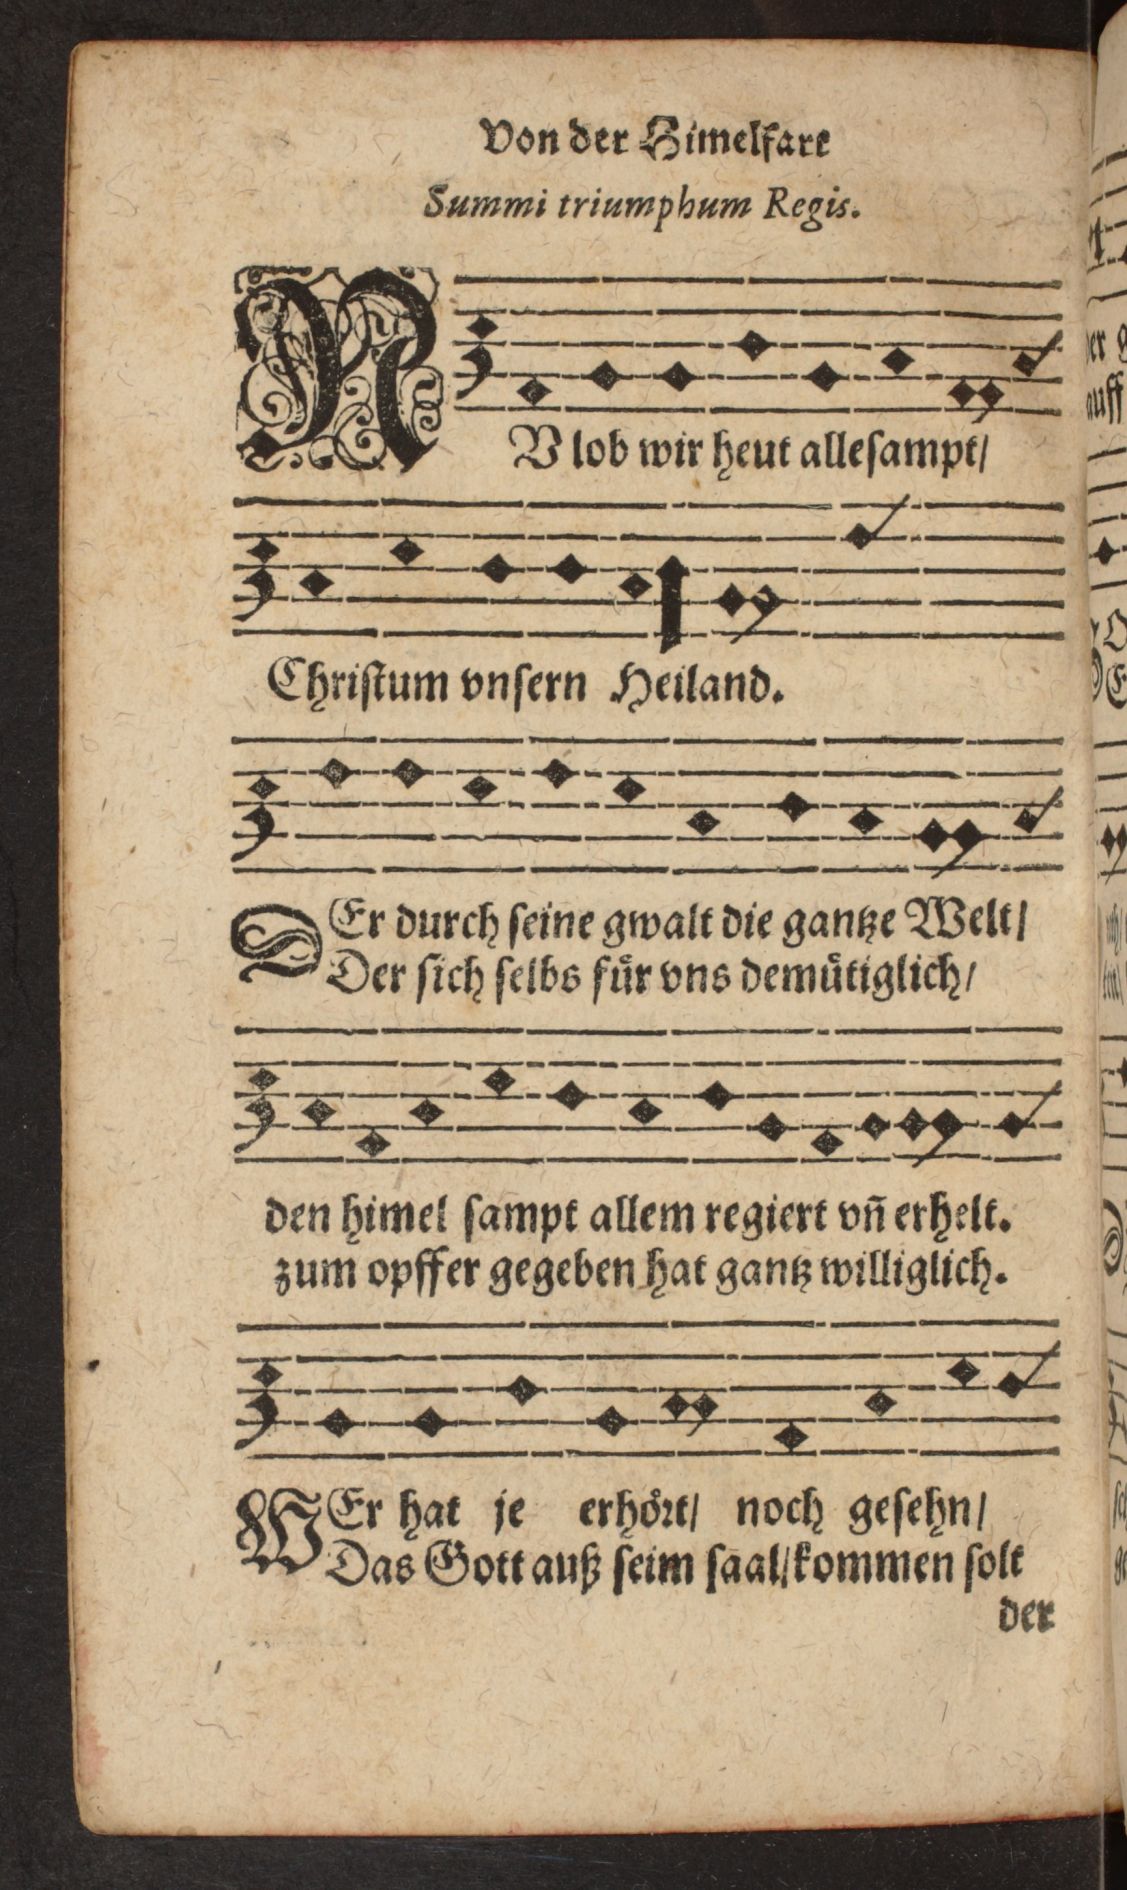 Von der Himelfart
Summi triumphum Regis.
NV lob wir heut alleſampt/
Chriſtum vnſern Heiland.
DEr durch ſeine gwalt die gantze Welt/
Der ſich ſelbs fuͤr vns demuͤtiglich/
den himel ſampt allem regiert vn̄ erhelt.
zum opffer gegeben hat gantz williglich.
WEr hat je erhoͤꝛt/ noch geſehn/
Das Gott auß ſeim ſaal/kommen ſolt
der